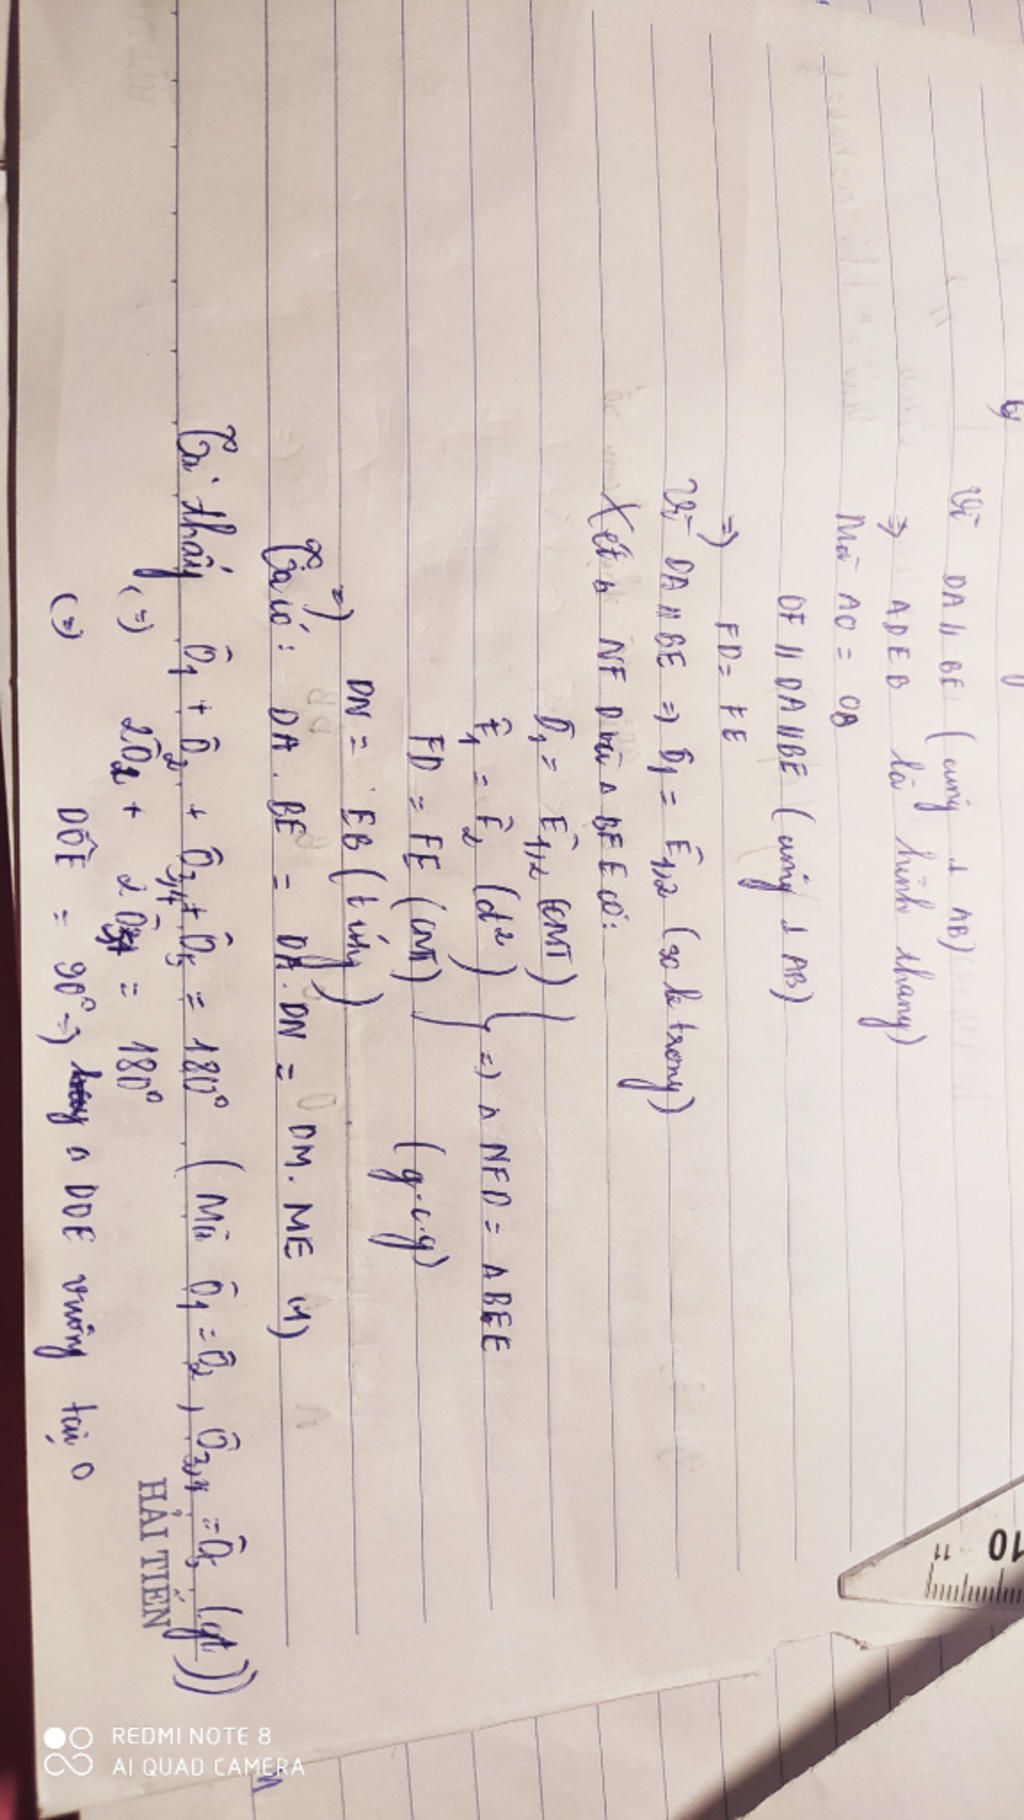 b)
Vì DA // BE ( cùng ⊥ AB)
=> ADEB là hình thang)
Mà AO = OB
OF // DA // BE ( cùng ⊥ AB)
=) FD = FE
Vì DA // BE => D̂1 = Ê1,2 (so le trong)
Xét Δ NFD và Δ BFE có:
D̂1 = Ê1,2 (CMT)
F̂1 = F̂2 (đ²) } => Δ NFD = Δ BFE
FD = FE (CMT) (g.c.g)
=) DN = EB ( t ứng )
Ta có: DA . BE = DA . DN = DM . ME
Ta thấy Ô1 + Ô2 + Ô3,4 + Ô5 = 180° ( Mà Ô1 = Ô2 , Ô3,4 = Ô5 (gt))
(=) 2Ô2 + 2Ô3,4 = 180°
(=) DÔE = 90° => Δ DOE vuông tại O
HẢI TIẾN
10
11
REDMI NOTE 8
AI QUAD CAMERA